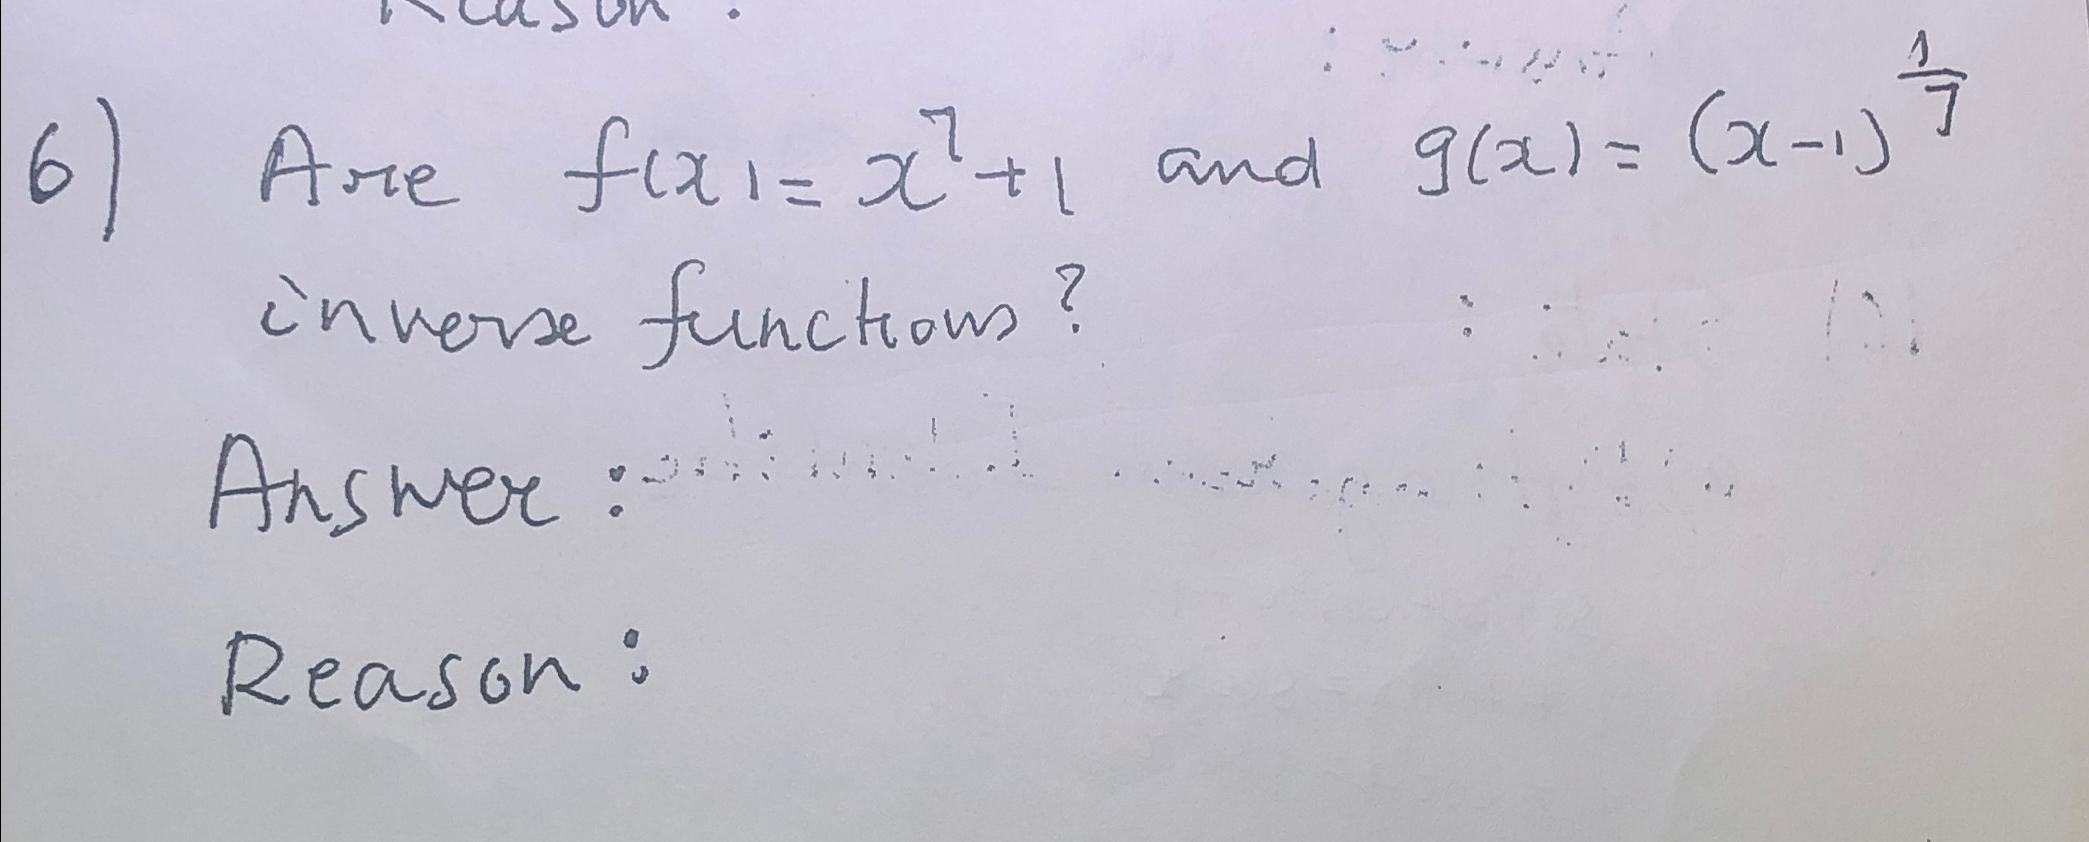 Reason :
6) Are f(x) = x⁷+1 and g(x) = (x-1)^(1/7)
inverse functions?
Answer :
Reason :